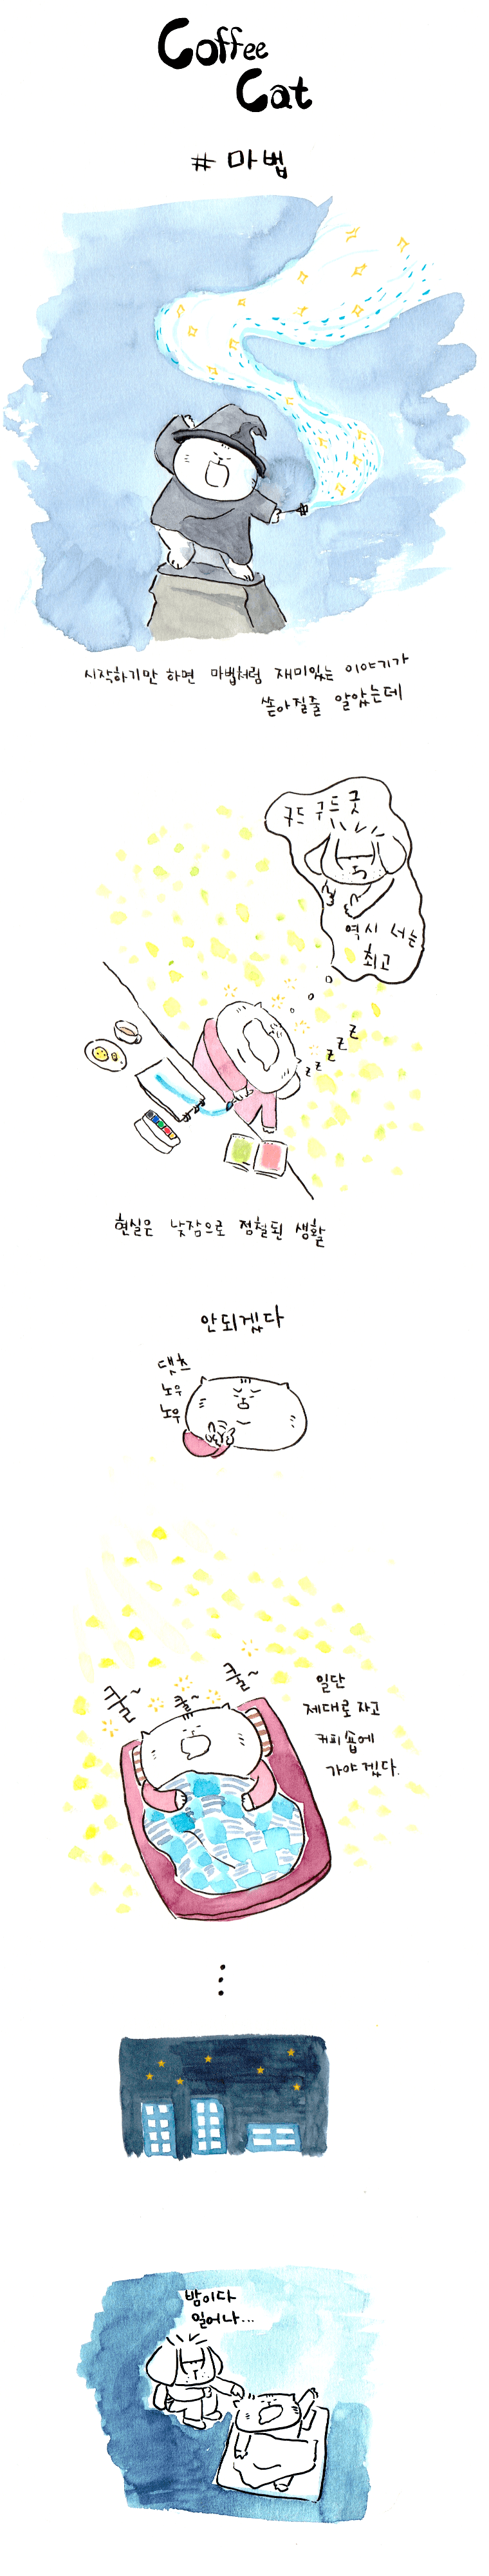 Coffee
Cat
# 마법
시작하기만 하면 마법처럼 재미있는 이야기가
쏟아질줄 알았는데
구드 구드 굿
역시 너는
최고
z z z z z
현실은 낮잠으로 점철된 생활
안되겠다
댓츠
노우
노우
쿨~
쿨
쿨~
일단
제대로 자고
커피숍에
가야겠다.
밤이다
일어나...